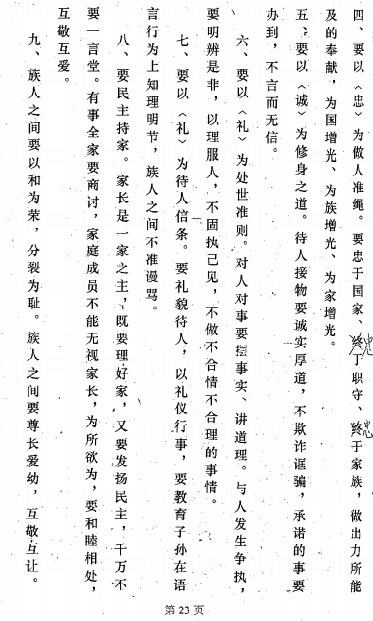 四、要以〈忠〉为做人准绳。要忠于国家、忠于职守、忠于家族，做出力所能
及的奉献，为国增光、为族增光、为家增光。
五、要以〈诚〉为修身之道。待人接物要诚实厚道，不欺诈诓骗，承诺的事要
办到，不言而无信。
六、要以〈礼〉为处世准则。对人对事要摆事实、讲道理。与人发生争执，
要明辨是非，以理服人，不固执己见，不做不合情不合理的事情。
七、要以〈礼〉为待人信条。要礼貌待人，以礼仪行事，要教育子孙在语
言行为上知理明节，族人之间不准谩骂。
八、要民主持家。家长是一家之主，既要理好家，又要发扬民主，千万不
要一言堂。有事全家要商讨，家庭成员不能无视家长，为所欲为，要和睦相处，
互敬互爱。
九、族人之间要以和为荣，分裂为耻。族人之间要尊长爱幼，互敬互让。
第23页